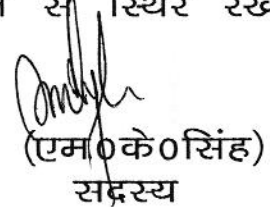 से स्थिर
(एम०के०सिंह)
सदस्य